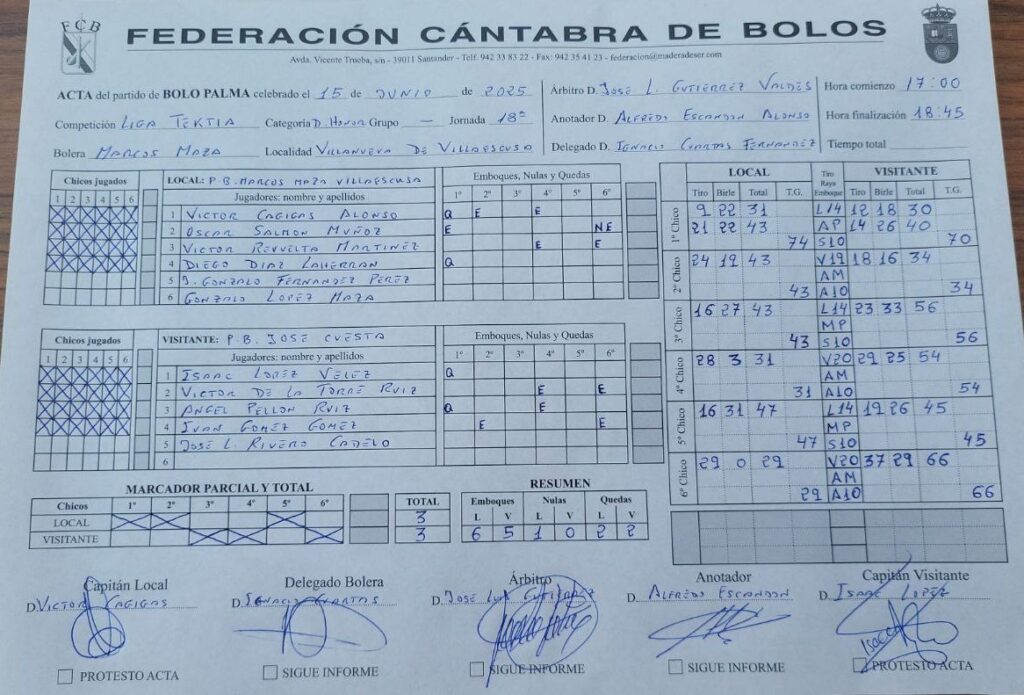 FCB
FEDERACIÓN CÁNTABRA DE BOLOS
Avda. Vicente Trueba, s/n - 39011 Santander - Telf. 942 33 83 22 - Fax: 942 35 41 23 - federacion@maderadeser.com
ACTA del partido de BOLO PALMA celebrado el 15 de JUNIO de 2025
Competición LIGA TEKTIA Categoría D. HONOR Grupo — Jornada 18ª
Bolera MARCOS MAZA Localidad VILLANUEVA DE VILLAESCUSA
Árbitro D. JOSE L. GUTIERREZ VALDES
Anotador D. ALFREDO ESCANDON ALONSO
Delegado D. IGNACIO CUARTAS FERNANDEZ
Hora comienzo 17:00
Hora finalización 18:45
Tiempo total
Chicos jugados
1 2 3 4 5 6
LOCAL: P.B. MARCOS MAZA VILLAESCUSA
Jugadores: nombre y apellidos
Emboques, Nulas y Quedas
1º 2º 3º 4º 5º 6º
1 VICTOR CAGIGAS ALONSO Q E E
2 OSCAR SALMON MUÑOZ E NE
3 VICTOR REVUELTA MARTINEZ E E
4 DIEGO DIAZ LAHERRAN Q
5 J. GONZALO FERNANDEZ PEREZ
6 GONZALO LOPEZ MAZA
Chicos jugados
1 2 3 4 5 6
VISITANTE: P.B. JOSE CUESTA
Jugadores: nombre y apellidos
Emboques, Nulas y Quedas
1º 2º 3º 4º 5º 6º
1 ISAAC LOPEZ VELEZ Q
2 VICTOR DE LA TORRE RUIZ E E
3 ANGEL PELLON RUIZ Q E
4 IVAN GOMEZ GOMEZ E E
5 JOSE L. RIVERO CADELO
6
LOCAL Tiro Raya Emboque VISITANTE
Tiro Birle Total T.G. Tiro Birle Total T.G.
1º Chico
9 22 31 L14 12 18 30
21 22 43 AP 14 26 40
74 S10 70
2º Chico
24 19 43 V19 18 16 34
AM
43 A10 34
3º Chico
16 27 43 L14 23 33 56
MP
43 S10 56
4º Chico
28 3 31 V20 29 25 54
AM
31 A10 54
5º Chico
16 31 47 L14 19 26 45
MP
47 S10 45
6º Chico
29 0 29 V20 37 29 66
AM
29 A10 66
MARCADOR PARCIAL Y TOTAL
Chicos 1º 2º 3º 4º 5º 6º TOTAL
LOCAL 3
VISITANTE 3
RESUMEN
Emboques Nulas Quedas
L V L V L V
6 5 1 0 2 2
Capitán Local
D. VICTOR CAGIGAS
PROTESTO ACTA
Delegado Bolera
D. IGNACIO CUARTAS
SIGUE INFORME
Árbitro
D. JOSE LUIS GUTIERREZ
SIGUE INFORME
Anotador
D. ALFREDO ESCANDON
SIGUE INFORME
Capitán Visitante
D. ISAAC LOPEZ
PROTESTO ACTA